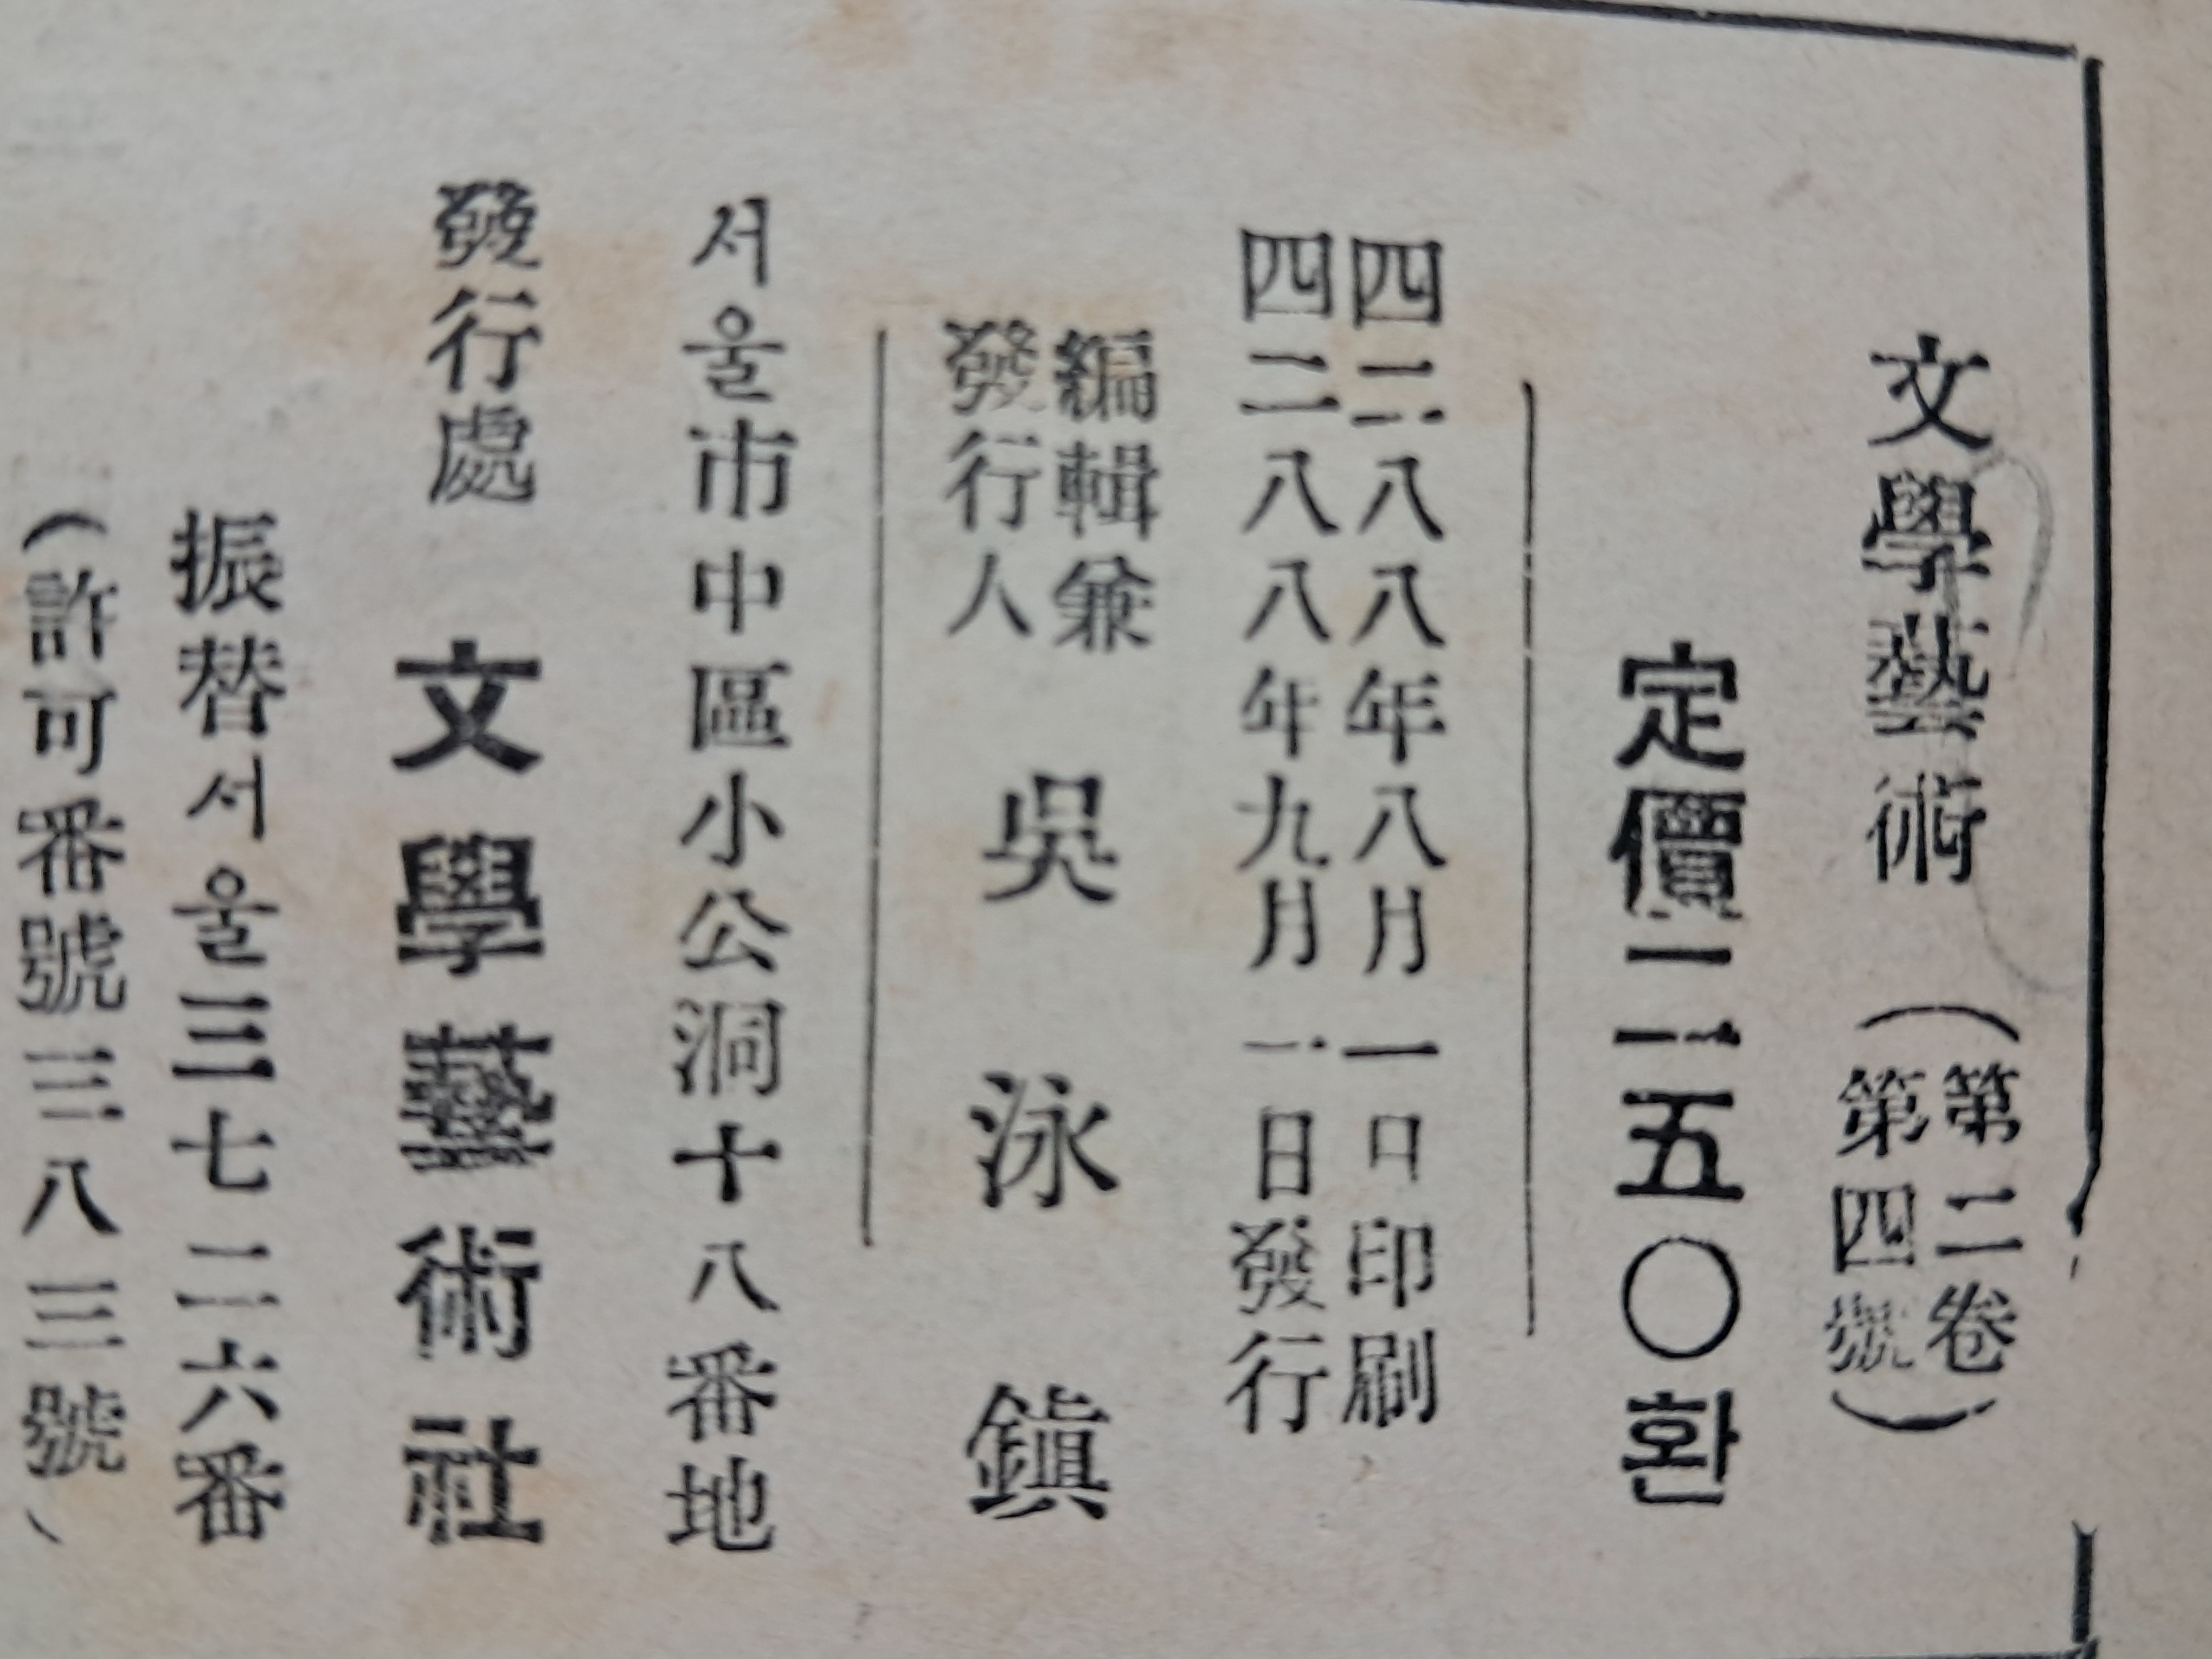 文學藝術 (第二卷 第四號)
定價二五〇환
四二八八年八月一日印刷
四二八八年九月一日發行
編輯兼
發行人 吳泳鎭
서울市中區小公洞十八番地
發行處 文學藝術社
振替서울三七二六番
(許可番號三八三號)